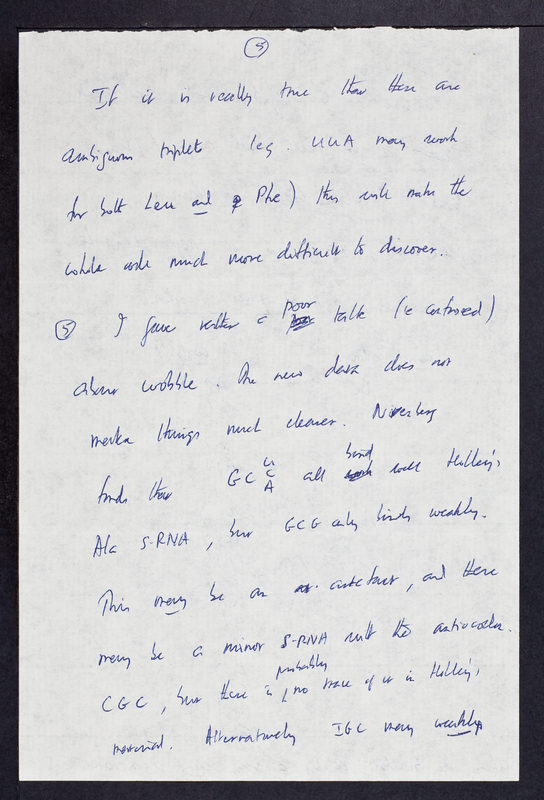 5
If it is really true that there are
ambiguous triplets (eg. UUA may work
for both Leu and Phe) this will make the
whole code much more difficult to discover.
5 I gave rather a poor talk (ie confused)
about wobble. The new data does not
make things much clearer. Nirenberg
finds that GC U C A all bind well Holley's
Ala S-RNA, but GCG only binds weakly.
This may be an artefact, and there
may be a minor S-RNA with the anticodon
CGC, but there is probably no trace of it in Holley's
material. Alternatively IGC may weakly